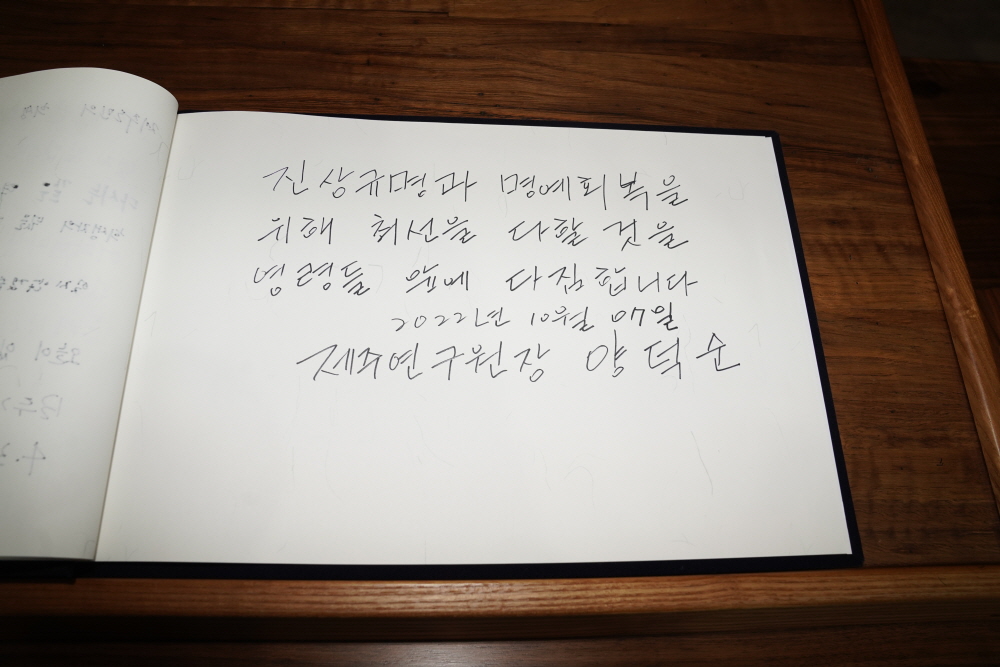 진상규명과 명예회복을
위해 최선을 다할 것을
영령들 앞에 다짐합니다
2022년 10월 07일
제주연구원장 양덕순